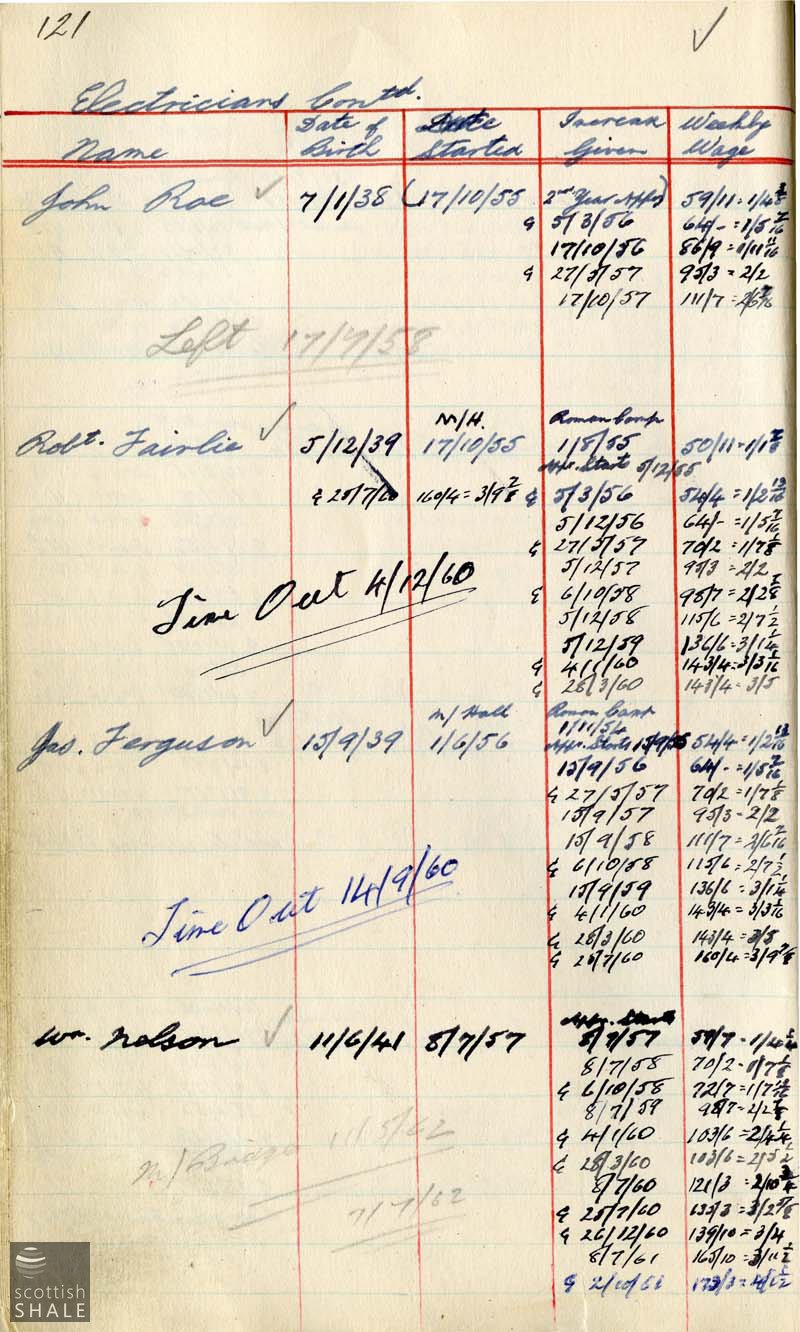 121
Electricians Contd.
Name Date of Birth Date Started Increase Given Weekly Wage
John Roe 7/1/38 (17/10/55 2nd Year Appce) 59/11 = 1/4
& 5/3/56 64/- = 1/5 7/16
17/10/56 86/9 = 1/11
& 27/5/57 95/3 = 2/2
17/10/57 111/7 = 2/6 7/16
Left 17/7/58
M/H. Roman Camp
Robt. Fairlie 5/12/39 17/10/55 1/8/55 50/11 = 1/1
Appr. Start 5/12/55
& 25/7/60 160/4 = 3/9 7/8 & 5/3/56 54/4 = 1/2 13/16
5/12/56 64/- = 1/5 7/16
& 27/5/57 70/2 = 1/7 1/8
5/12/57 95/3 = 2/2
Time Out 4/12/60
& 6/10/58 98/7 = 2/2 7/8
5/12/58 115/6 = 2/7 1/2
5/12/59 136/6 = 3/1 1/4
& 4/1/60 143/4 = 3/3 1/16
& 28/3/60 143/4 = 3/5
M/Hall Roman Camp
1/11/54
Jas. Ferguson 15/9/39 1/6/56 Appr. Starts 15/9/55 54/4 = 1/2 13/16
15/9/56 64/- = 1/5 7/16
& 27/5/57 70/2 = 1/7 1/8
15/9/57 95/3 = 2/2
15/9/58 111/7 = 2/6 7/16
& 6/10/58 115/6 = 2/7 1/2
15/9/59 136/6 = 3/1 1/4
Time Out 14/9/60
& 4/1/60 143/4 = 3/3 1/16
& 28/3/60 143/4 = 3/5
& 25/7/60 160/4 = 3/9 7/8
Appr. Starts
Wm. Nelson 11/6/41 8/7/57 8/7/57 59/7 = 1/4
8/7/58 70/2 = 1/7 1/8
& 6/10/58 72/7 = 1/7 13/16
8/7/59 98/7 = 2/2 7/8
& 4/1/60 103/6 = 2/4
M/Bridge 11/5/62
& 28/3/60 103/6 = 2/5 1/2
8/7/60 121/3 = 2/10 3/4
7/7/62
& 25/7/60 135/3 = 3/2 5/8
& 26/12/60 139/10 = 3/4
8/7/61 165/10 = 3/11 1/2
& 2/10/61 173/3 =
scottish
SHALE